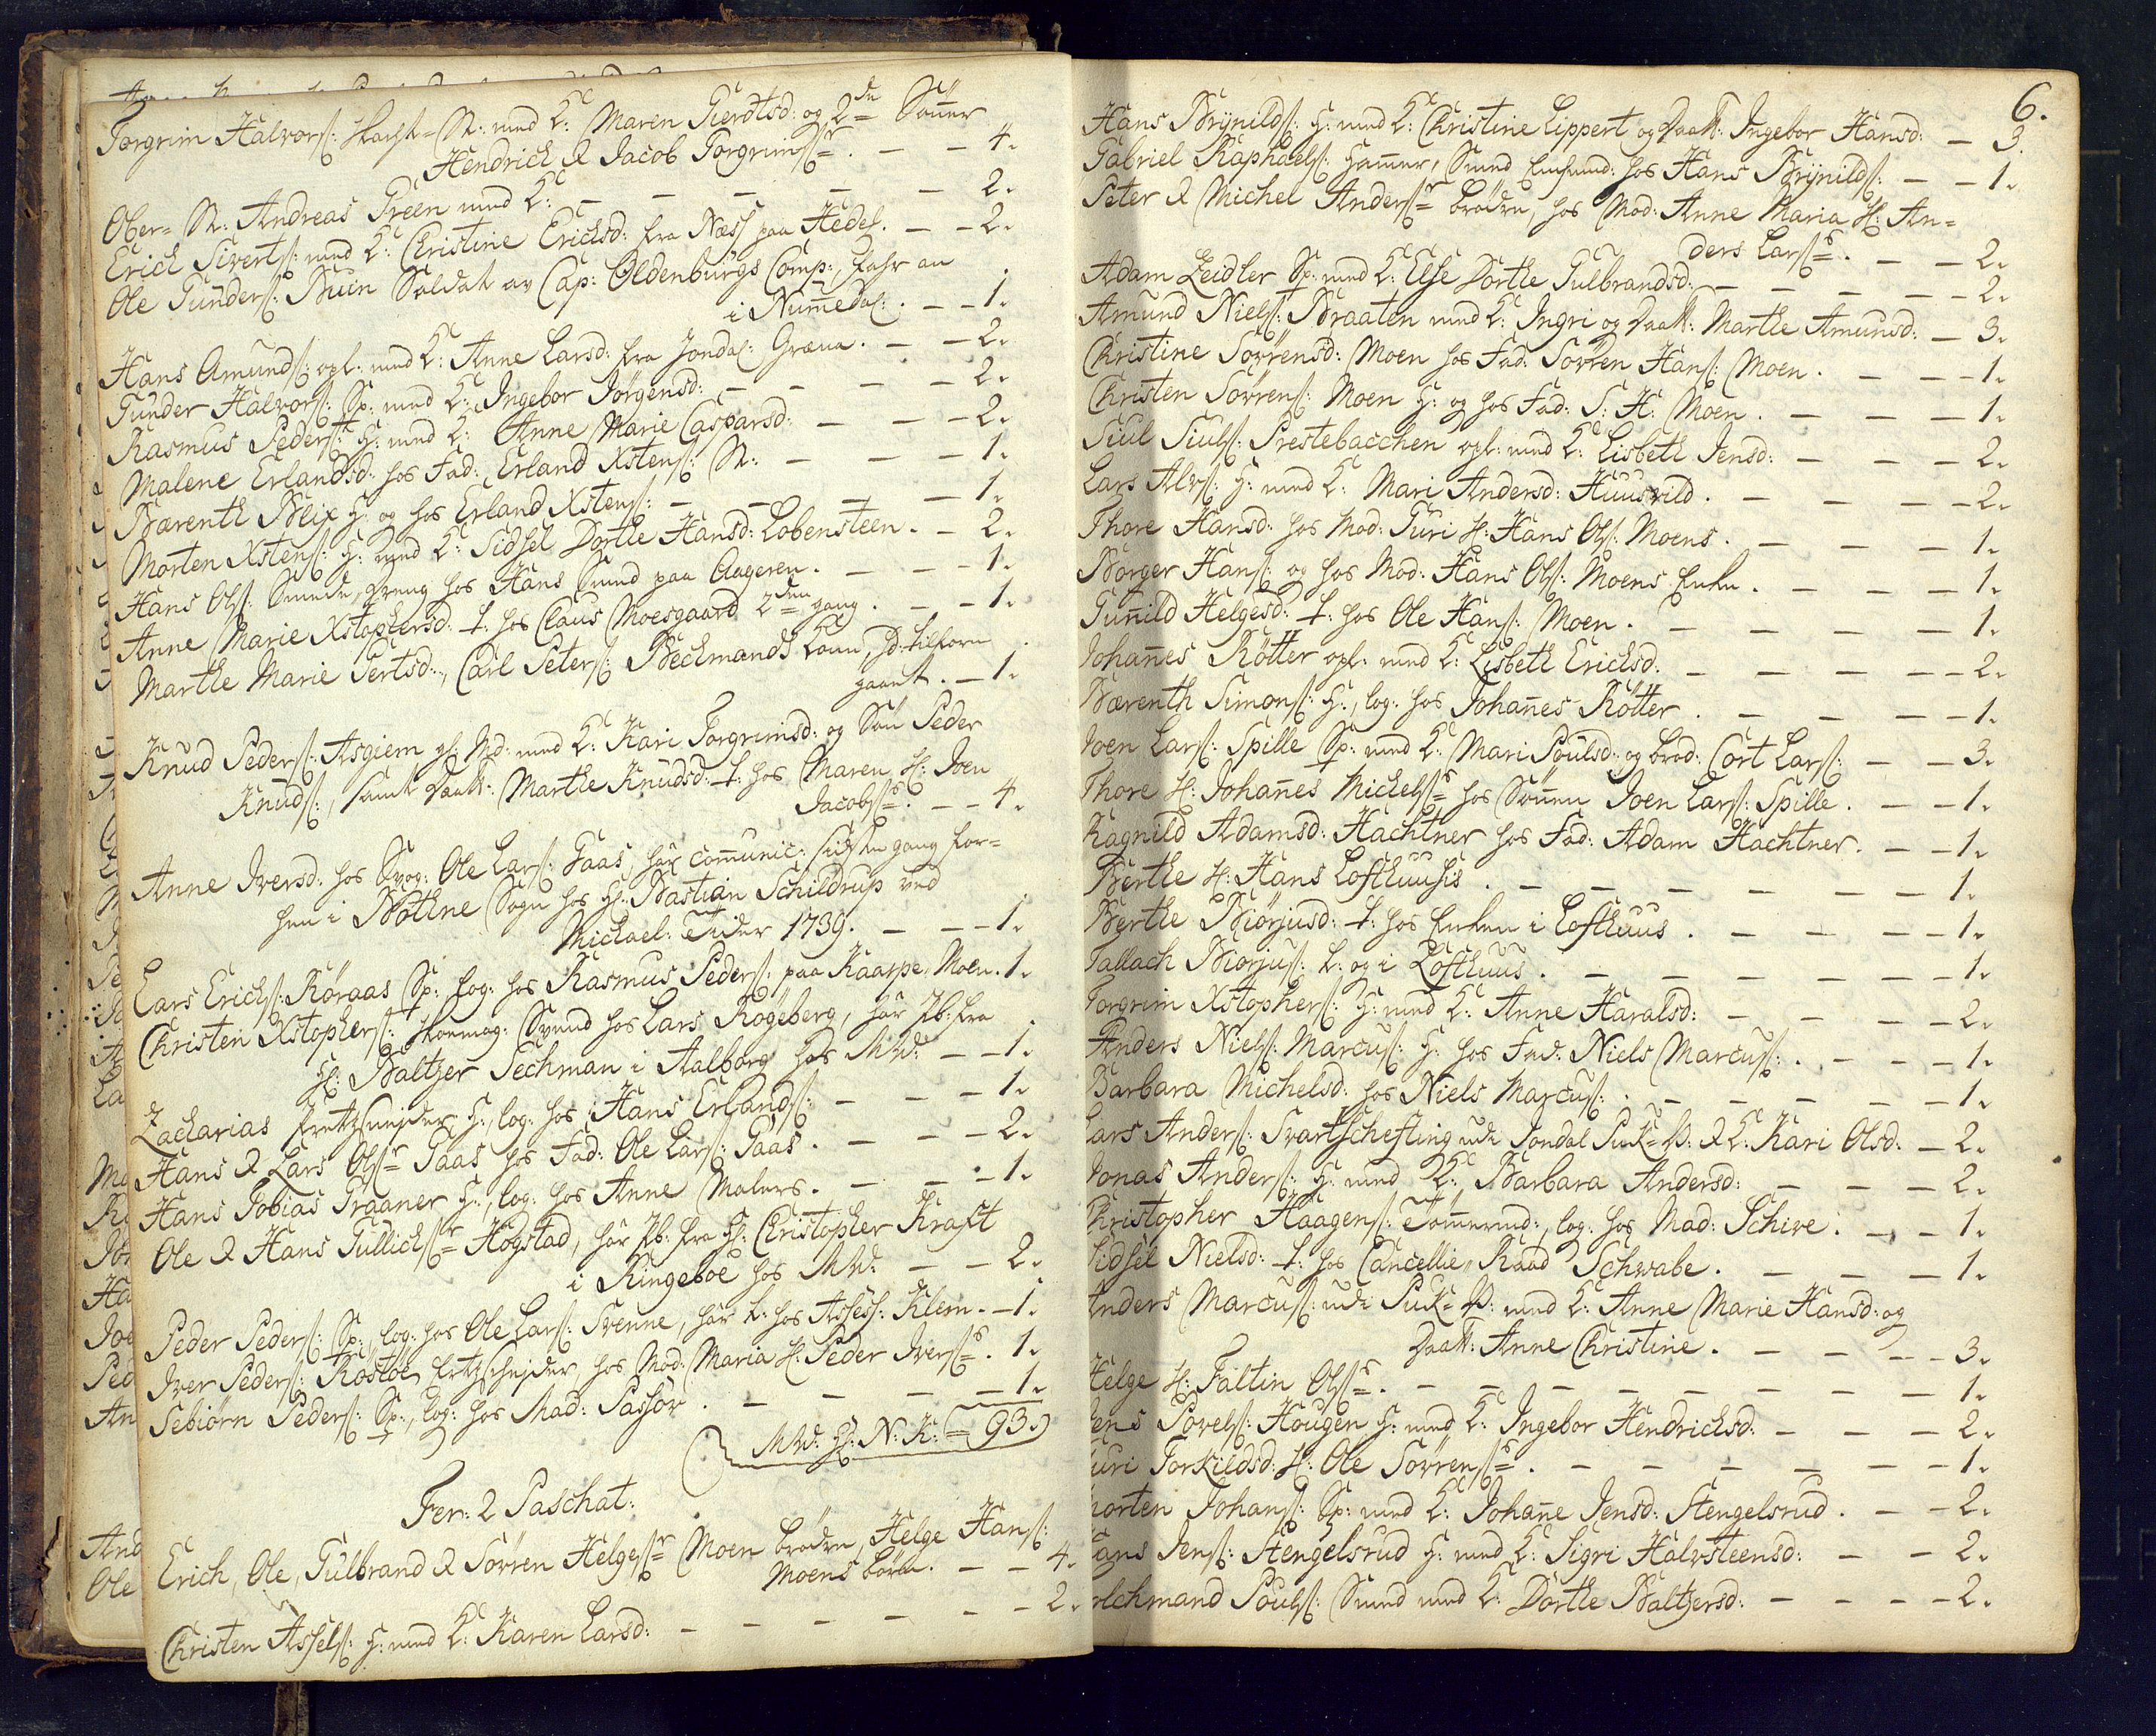 Torgrim Halvorſ: Skacht-St: med K: Maren Gierdtsd: og 2de Sönner
Hendrich & Jacob Torgrimſr. — — 4.
Ober-St: Andreas Green med K: — — — — 2.
Erich Sivertſ: med K: Christine Erichsd: fra Næss paa Hedel. — — 2.
Ole Gunderſ: Bruin Soldat av Cap: Oldenburgs Comp:, 
i Nummedal: — — 1.
Hans Amundſ: opl: med K: Anne Larsd: fra Jondal: Græna. — — 2.
Gunder Halvorſ: Sp: med K: Ingebor Jörgensd: — — — — 2.
Rasmus Pederſ: H: med K: Anne Marie Caspersd: — — — 2.
Malene Erlandsd: hos Fad: Erland Xstenſ: St: — — — 1.
Bærenth Bleix H: og hos Erland Xstenſ: — — — — 1.
Morten Xstenſ: H: med K: Sidsel Dorthe Hansd: Lobensteen. — 2.
Hans Olſ: Smede-Dreng hos Hans Smed paa Aageren. — — — 1.
Anne Marie Xstophersd: t: hos Claus Moesgaard 2den gang. — — 1.
Marthe Marie Gertsd:, Carl Peterſ: Beckmands Kone, tilforn
gaaet. — 1.
Knud Pederſ: Asgiem med K: Kari Torgrimsd: og Sön Peder
Knudſ:, samt Daatt: Marthe Knudsd: t: hos Maren H: Joen
Jacobſs. — — 4.
Anne Iversd: hos Svog: Ole Larſ: Gaas, har communic: sidste gang for-
hen i Böthne Sogn hos Hr: Bastian Schildrup ved
Michael: Tider 1739. — — — 1.
Lars Erichſ: Röraas Sp: log: hos Rasmus Pederſ: paa Kaarpe Moen. 1.
Christen Xstopherſ: Skoemag: Svend hos Lars Rögeberg, har Sb: fra
Hr: Baltzer Sechman i Aalborg hos M W: — — 1.
Zacharias H:, log: hos Hans Erlandſ: — — — 1.
Hans & Lars Olſr Gaas hos Fad: Ole Larſ: Gaas. — — — 2.
Hans Tobias Graaner H:, log: hos Anne Malers. — — — 1.
Ole & Hans Gullichſr Högstad, har Sb: fra Hr: Christopher Kraft
i Ringeboe hos M W: — — 2.
Peder Pederſ: Sp:, log: hos Ole Larſ: Svenne, har t: hos Assess: Klem. — 1.
Iver Pederſ: Rostöe, hos Mad: Maria H: Peder Iverſs. 1.
Sebiörn Pederſ: Sp:, log: hos Mad: Passor. — — — — 1.
M W: Hr: N: K: = 93.
Fer: 2 Paschat:
Erich, Ole, Gulbrand & Sörren Helgeſr Moen brödre, Helge Hanſ:
Moens börn. — — 4.
Christen Asselſ: H: med K: Karen Larsd: — — — — — 2.
6.
Hans Brÿnildſ: H: med K: Christine Lippert og Daatt: Ingebor Hansd: — 3.
Gabriel Raphaelſ: Hammer-Smed hos Hans Brÿnildſ: — — 1.
Peter & Michel Anderſr brödre, hos Mod: Anne Maria H: An-
ders Larſs. — — 2.
Adam Zeidler Sp: med K: Else Dorthe Gulbrandsd: — — — — 2.
Amund Nielſ: Braaten med K: Ingri og Daatt: Marthe Amunsd: — 3.
Christine Sörrensd: Moen hos Fad: Sörren Hanſ: Moen. — — — 1.
Christen Sörrenſ: Moen H: og hos Fad: S: H: Moen. — — — — 1.
Siul Siulſ: Prestebacchen opl: med K: Lisbeth Jensd: — — — 2.
Lars Alvſ: H: med K: Mari Andersd: Huusvild. — — — — 2.
Thore Hansd: hos Mod: Guri H: Hans Olſ: Moens. — — — 1.
Börger Hanſ: og hos Mod: Hans Olſ: Moens Enke. — — — 1.
Gunild Helgesd: t: hos Ole Hanſ: Moen. — — — — — 1.
Johannes Rötter opl: med K: Lisbeth Erichsd: — — — — 2.
Bærenth Simonſ: H:, log: hos Johannes Rötter. — — — — 1.
Joen Larſ: Spille Sp: med K: Mari Poulsd: og brod: Cort Larſ: — — 3.
Thore H: Johannes Michelſs hos Sönnen Joen Larſ: Spille. — — 1.
Ragnild Adamsd: Hachtner hos Fad: Adam Hachtner. — — 1.
Berthe H: Hans Lofthuusis. — — — — — — 1.
Berthe Biörjusd: t: hos Enken i Lofthuus. — — — — 1.
Tallach Biorjuſ: t: og i Lofthuus. — — — — — — 1.
Torgrim Xstopherſ: H: med K: Anne Haralsd: — — — — 2.
Anders Nielſ: Marcuſ: H: hos Fad: Niels Marcuſ: — — — 1.
Barbara Michelsd: hos Niels Marcuſ: — — — — — 1.
Lars Anderſ: Svartschefting udi Jondal Puk-W: & K: Kari Olsd: — 2.
Jonas Anderſ: H: med K: Barbara Andersd: — — — — 2.
Christopher Haagenſ: Tömmermd:, log: hos Mad: Schive. — — 1.
Sidsel Nielsd: t: hos Cancellie-Raad Schwabe. — — — — 1.
Anders Marcuſ: udi Puk-W: med K: Anne Marie Hansd: og
Daatt: Anne Christine. — — — — 3.
Helge H: Faltin Olſs. — — — — — — — — 1.
Jens Povelſ: Hougen H: med K: Ingebor Hendrichsd: — — — 2.
Guri Torkildsd: H: Ole Sörrenſs. — — — — — — 1.
Morten Johanſ: Sp: med K: Johanne Jensd: Stengelsrud. — — 2.
Hans Jenſ: Stengelsrud H: med K: Sigri Halvsteensd: — — 2.
Volchmand Poulſ: Smed med K: Dorthe Baltzersd: — — — 2.